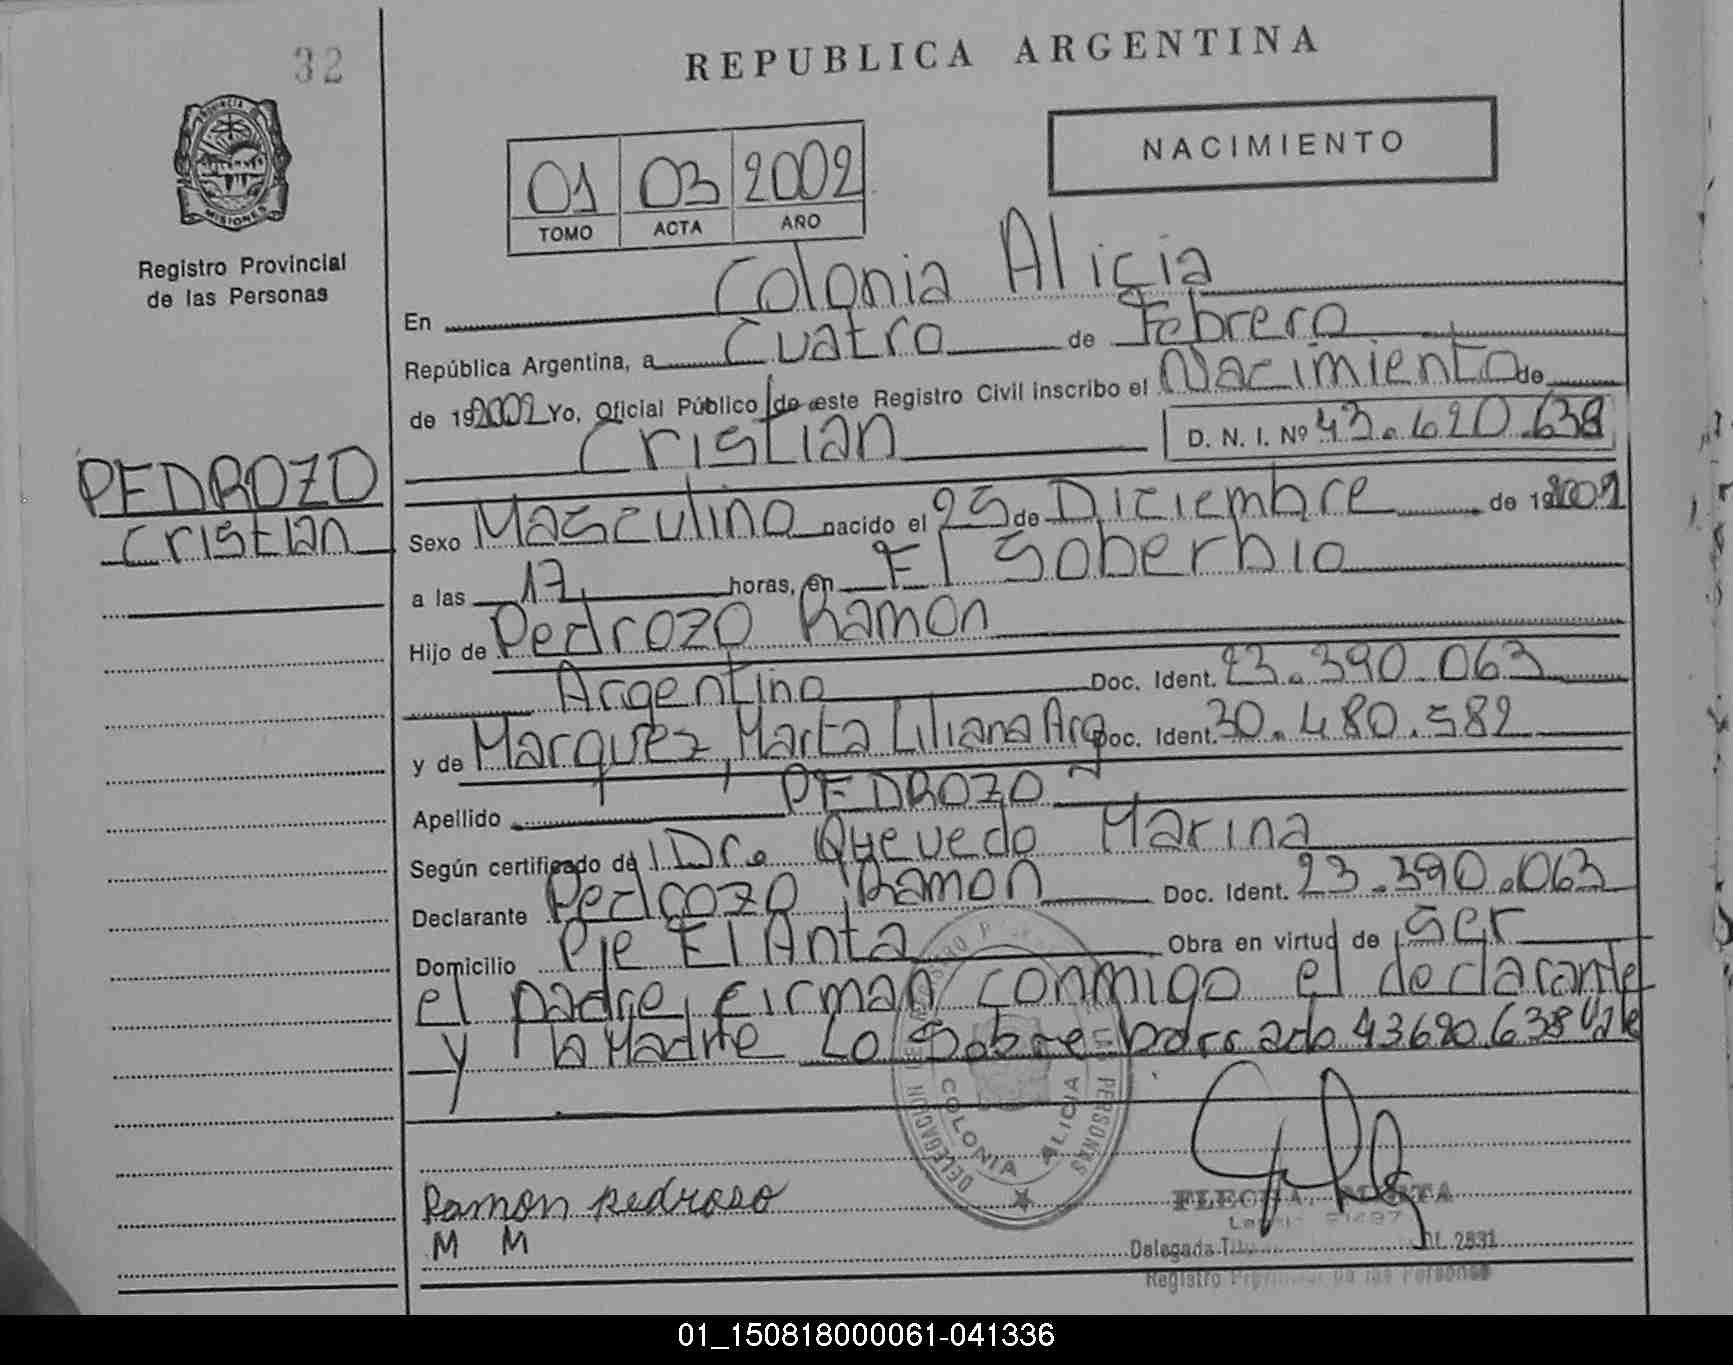 32
REPUBLICA ARGENTINA
NACIMIENTO
01 03 2002
TOMO ACTA AÑO
PROVINCIA
MISIONES
Registro Provincial
de las Personas
En Colonia Alicia
República Argentina, a Cuatro de Febrero
de 192002 Yo, Oficial Público de este Registro Civil inscribo el Nacimiento de
Cristian D. N. I. Nº 43.620.638
PEDROZO
Cristian
Sexo Masculino nacido el 25 de Diciembre de 19
a las 17 horas, en El Soberbio
Hijo de Pedrozo Ramon
Argentino Doc. Ident. 23.390.063
y de Marquez, Marta Liliana Arg Doc. Ident. 30.480.582
Apellido PEDROZO
Según certificado de Dr. Quevedo Marina
Declarante Pedrozo Ramon Doc. Ident. 23.390.063
Domicilio Pje El Anta Obra en virtud de ser
el padre, firman conmigo el declarante
y la Madre Lo Sobre=borrado 43620.638 Vale
DELEGACION PERSONAS
COLONIA ALICIA
Ramon Pedroso
M M
FLECHA,
Delegada 2831
Registro Provincial de las Personas
01_150818000061-041336